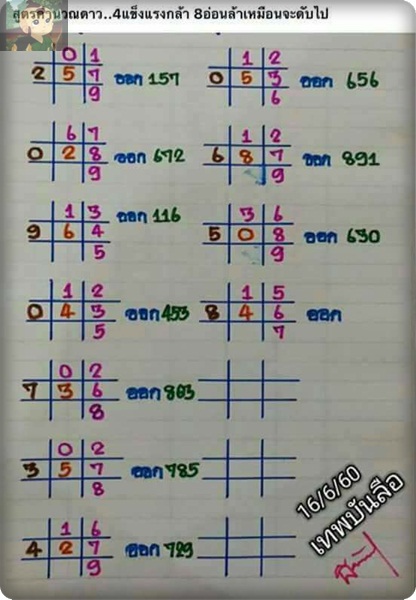 สูตรคำนวณดาว..4แข็งแรงกล้า 8อ่อนล้าเหมือนจะดับไป
0 1
2 5 7 ออก 157
9
6 7
0 2 8 ออก 672
9
1 3 ออก 116
9 6 4
5
1 2
0 4 3 ออก 453
5
0 2
7 3 6 ออก 803
8
0 2
3 5 7 ออก 785
8
1 6
4 2 7 ออก 729
9
1 2
0 5 3 ออก 656
6
1 2
6 8 7 ออก 891
9
3 6
5 0 8 ออก 630
9
1 5
8 4 6 ออก
7
16/6/60
เทพบันลือ